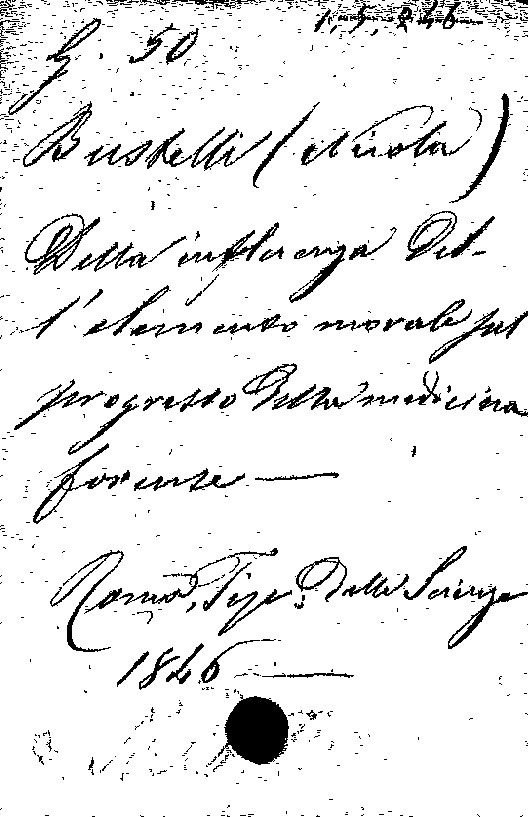 1. 5. 2 46
G. 50
Bustelli (Nicola)
Della influenza del-
l'elemento morale sul
progresso della medicina
forense —
Roma, Tip: delle Scienze
1846 —